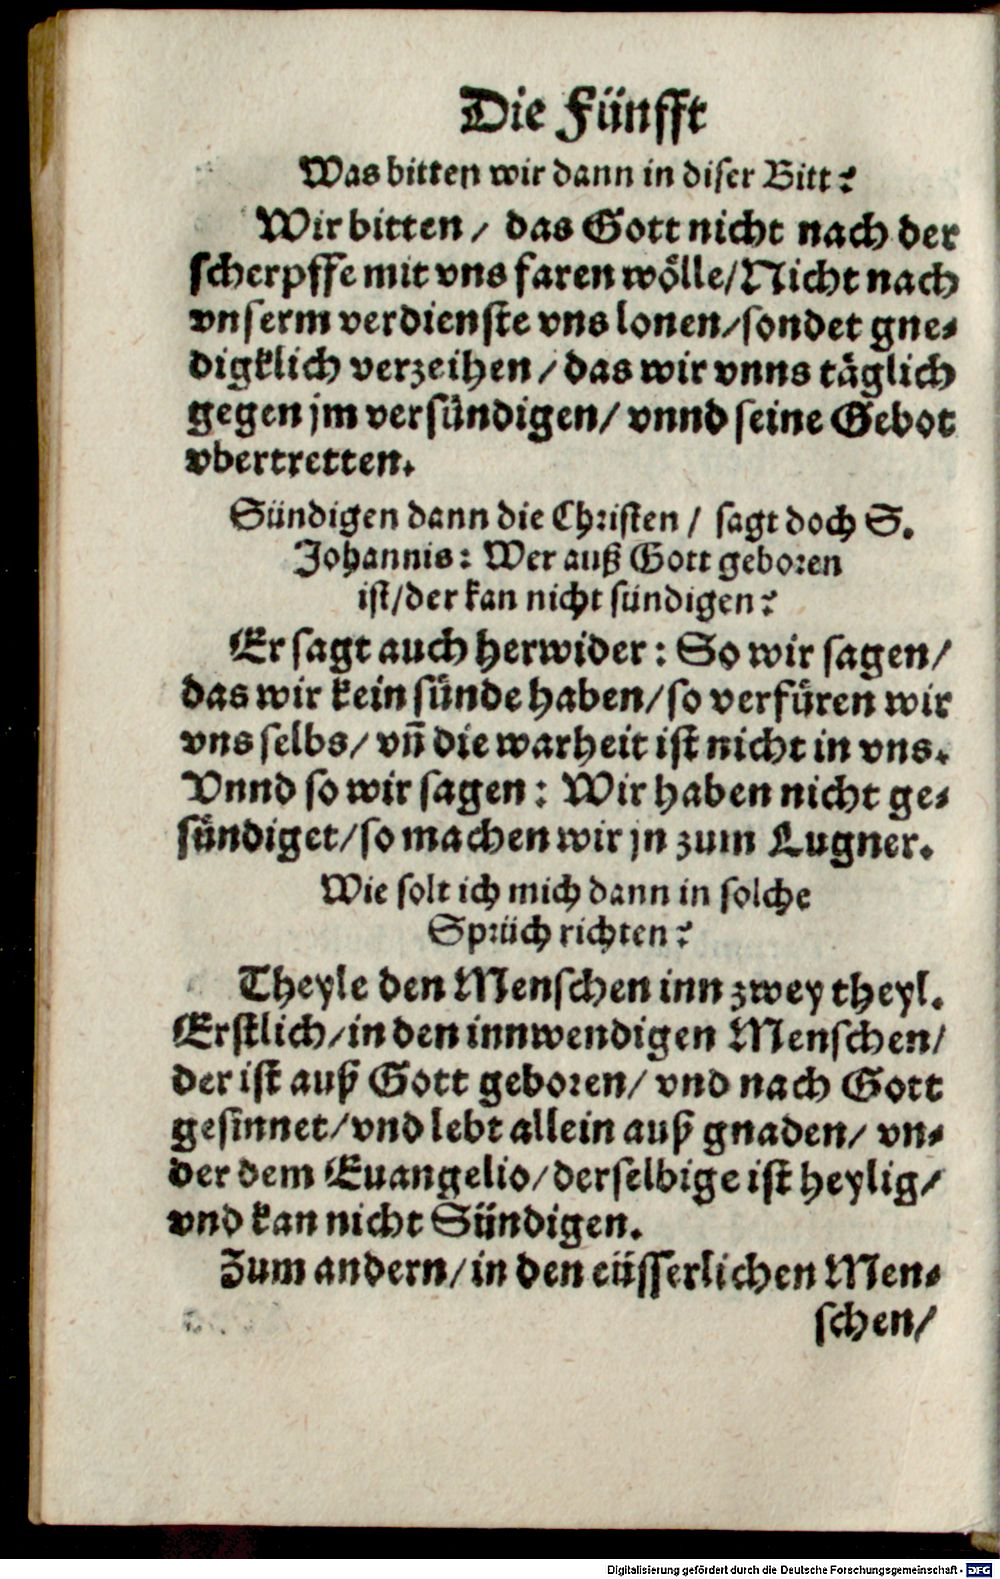 Die Fünfft
Was bitten wir dann in diser Bitt?
Wir bitten / das Gott nicht nach der
scherpffe mit vns faren wölle/Nicht nach
vnserm verdienste vns lonen/sondet gne-
digklich verzeihen / das wir vnns täglich
gegen jm versündigen/ vnnd seine Gebot
vbertretten.
Sündigen dann die Christen / sagt doch S.
Johannis: Wer auß Gott geboren
ist/der kan nicht sündigen?
Er sagt auch herwider: So wir sagen/
das wir kein sünde haben/so verfüren wir
vns selbs/ vñ die warheit ist nicht in vns.
Vnnd so wir sagen: Wir haben nicht ge-
sündiget/so machen wir jn zum Lugner.
Wie solt ich mich dann in solche
Sprüch richten?
Theyle den Menschen inn zwey theyl.
Erstlich/in den innwendigen Menschen/
der ist auß Gott geboren/ vnd nach Gott
gesinnet/vnd lebt allein auß gnaden/ vn-
der dem Euangelio/derselbige ist heylig/
vnd kan nicht Sündigen.
Zum andern/in den eüsserlichen Men-
schen/
Digitalisierung gefördert durch die Deutsche Forschungsgemeinschaft - DFG